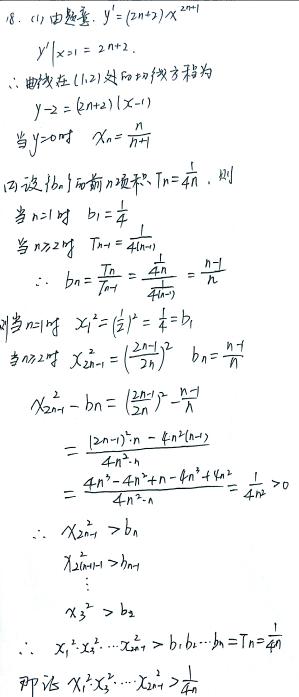 18. (1) 由题意. y' = (2n+2)x^{2n+1}
y'|x=1 = 2n+2.
∴ 曲线在(1,2)处的切线方程为
y-2 = (2n+2)(x-1)
当y=0时 x_n = \frac{n}{n+1}
(2) 设{b_n}的前n项积T_n = \frac{1}{4n}. 则
当n=1时 b_1 = \frac{1}{4}
当n≥2时 T_{n-1} = \frac{1}{4(n-1)}
∴ b_n = \frac{T_n}{T_{n-1}} = \frac{\frac{1}{4n}}{\frac{1}{4(n-1)}} = \frac{n-1}{n}
则当n=1时 x_1^2 = (\frac{1}{2})^2 = \frac{1}{4} = b_1
当n≥2时 x_{2n-1}^2 = (\frac{2n-1}{2n})^2 b_n = \frac{n-1}{n}
x_{2n-1}^2 - b_n = (\frac{2n-1}{2n})^2 - \frac{n-1}{n}
= \frac{(2n-1)^2·n - 4n^2(n-1)}{4n^2·n}
= \frac{4n^3-4n^2+n-4n^3+4n^2}{4n^2·n} = \frac{1}{4n^2} > 0
∴ x_{2n-1}^2 > b_n
x_{2(n-1)-1}^2 > b_{n-1}
⋮
x_3^2 > b_2
∴ x_1^2·x_3^2·…x_{2n-1}^2 > b_1b_2…b_n = T_n = \frac{1}{4n}
即证 x_1^2·x_3^2·…·x_{2n-1}^2 > \frac{1}{4n}